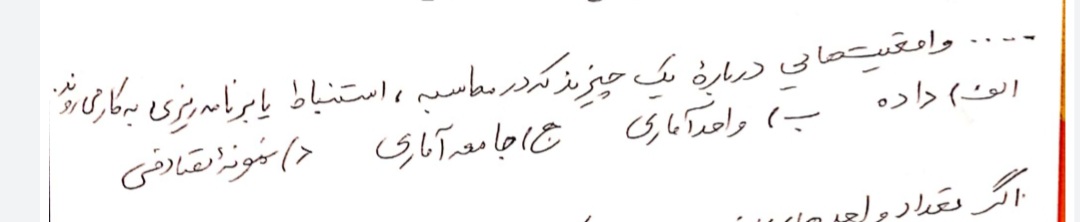 ..... واقعیت‌هایی دربارهٔ یک چیزند که در محاسبه ، استنباط یا برنامه‌ریزی به کار می‌روند.
الف) داده ب) واحد آماری ج) جامعه آماری د) نمونهٔ تصادفی
اگر تعداد واحدهای